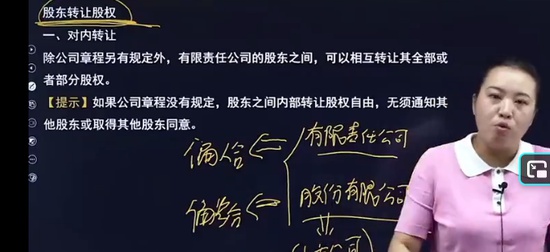 股东转让股权
一、对内转让
除公司章程另有规定外，有限责任公司的股东之间，可以相互转让其全部或
者部分股权。
【提示】如果公司章程没有规定，股东之间内部转让股权自由，无须通知其
他股东或取得其他股东同意。
偏人合 有限责任公司
偏资合 股份有限公司